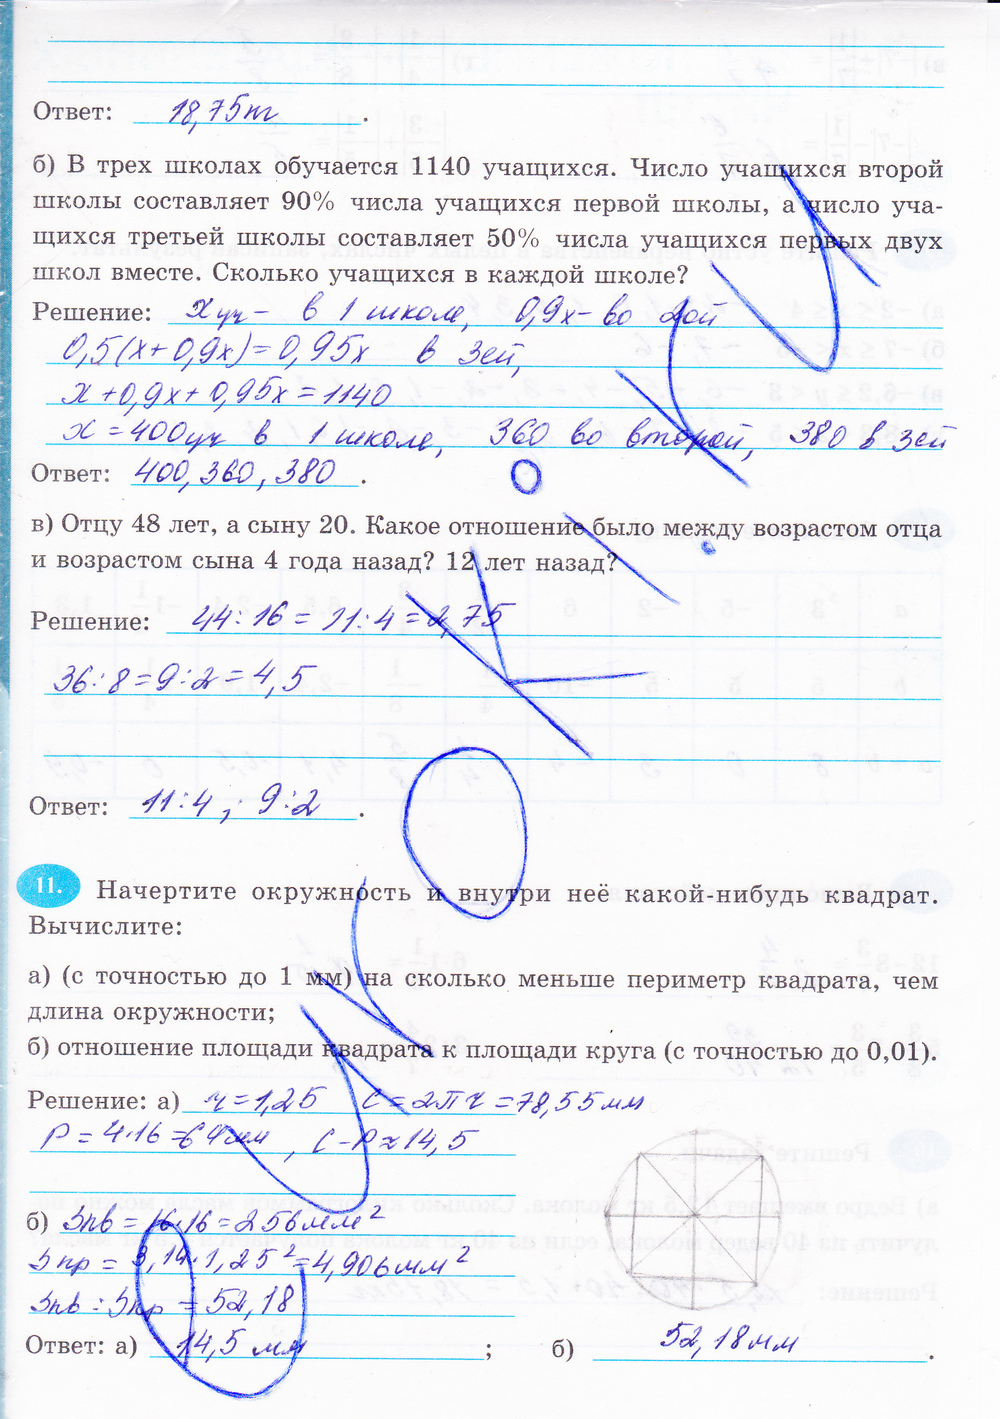 Ответ: 18,75 кг.
б) В трех школах обучается 1140 учащихся. Число учащихся второй
школы составляет 90% числа учащихся первой школы, а число уча-
щихся третьей школы составляет 50% числа учащихся первых двух
школ вместе. Сколько учащихся в каждой школе?
Решение: x уч - в 1 школе, 0,9x - во 2ой
0,5(x+0,9x)=0,95x в 3ей,
x+0,9x+0,95x=1140
x=400уч в 1 школе, 360 во второй, 380 в 3ей
Ответ: 400, 360, 380.
в) Отцу 48 лет, а сыну 20. Какое отношение было между возрастом отца
и возрастом сына 4 года назад? 12 лет назад?
Решение: 44:16=11:4=2,75
36:8=9:2=4,5
Ответ: 11:4; 9:2.
11. Начертите окружность и внутри неё какой-нибудь квадрат.
Вычислите:
а) (с точностью до 1 мм) на сколько меньше периметр квадрата, чем
длина окружности;
б) отношение площади квадрата к площади круга (с точностью до 0,01).
Решение: а) r=1,25 C=2πr=78,55мм
P=4·16=64мм, C-P≈14,5
б) Sкв=16·16=256мм²
Sкр=3,14·1,25²=4,906мм²
Sкв:Sкр=52,18
Ответ: а) 14,5 мм; б) 52,18мм.
UROKI.KU